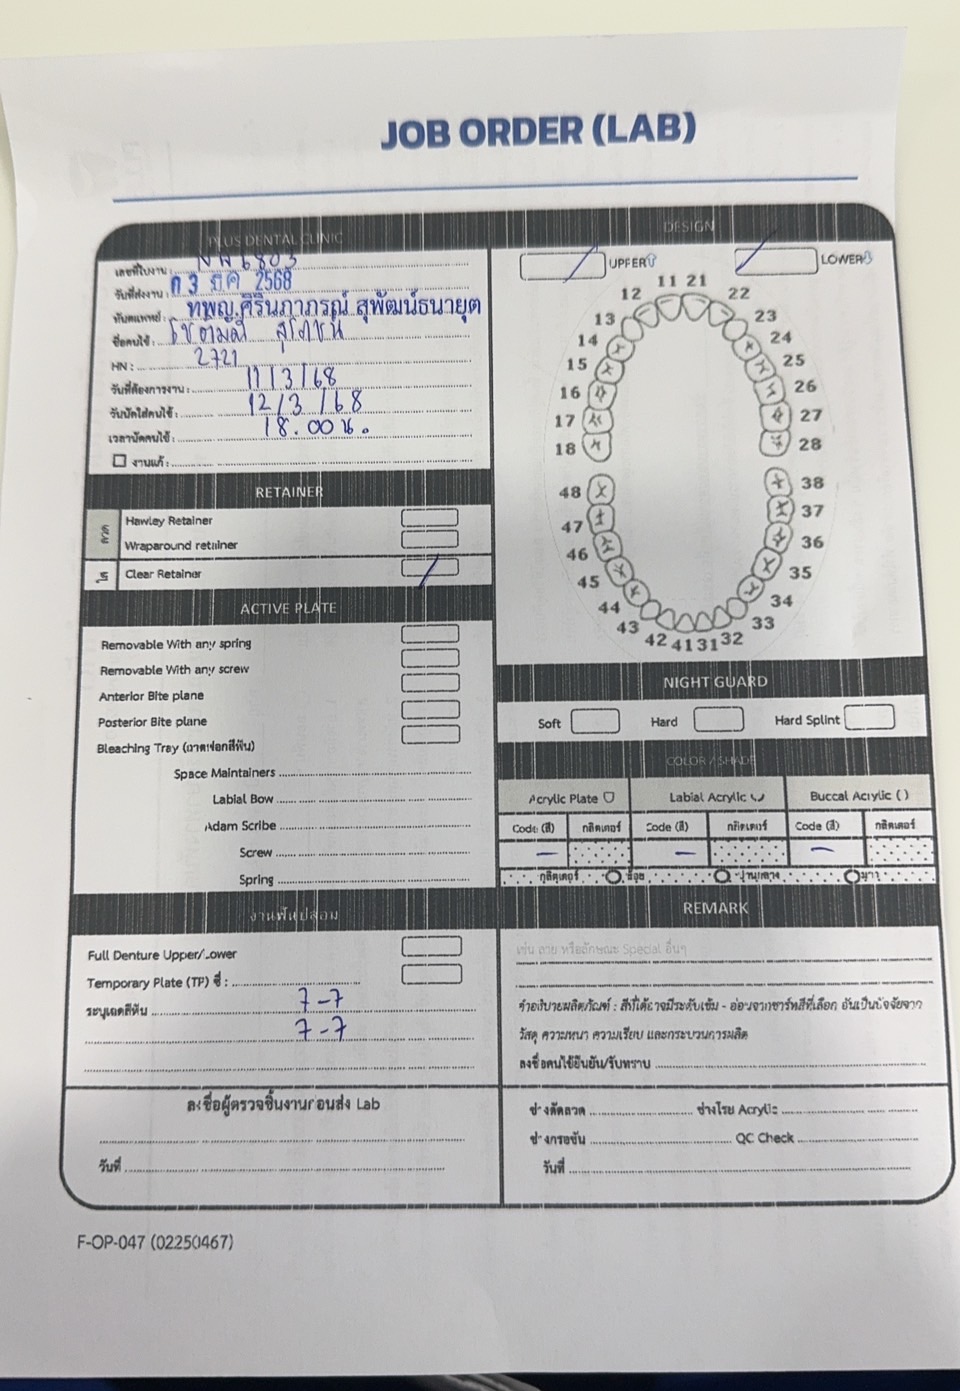 JOB ORDER (LAB)
PLUS DENTAL CLINIC
เลขที่ใบงาน : 6803
วันที่ส่งงาน : 0 3 มี.ค. 2568
ทันตแพทย์ : ทพญ.ศิรินภาภรณ์ สุพัฒน์ธนายุต
ชื่อคนไข้ :
HN : 2721
วันที่ต้องการงาน : 11/3/68
วันนัดใส่คนไข้ : 12/3/68
เวลานัดคนไข้ : 18.00 น.
งานแก้ :
RETAINER
ลวด
Hawley Retainer
Wraparound retainer
ใส
Clear Retainer
ACTIVE PLATE
Removable With any spring
Removable With any screw
Anterior Bite plane
Posterior Bite plane
Bleaching Tray (ถาดฟอกสีฟัน)
Space Maintainers
Labial Bow
Adam Scribe
Screw
Spring
งานฟันปลอม
Full Denture Upper/Lower
Temporary Plate (TP) ซี่ :
ระบุเฉดสีฟัน 7-7
7-7
ลงชื่อผู้ตรวจชิ้นงานก่อนส่ง Lab
วันที่
DESIGN
UPPER LOWER
11 21
12 22
13 23
14 24
15 25
16 26
17 27
18 28
48 38
47 37
46 36
45 35
44 34
43 33
42 41 31 32
NIGHT GUARD
Soft Hard Hard Splint
COLOR / SHADE
Acrylic Plate Labial Acrylic Buccal Acrylic ( )
Code (สี) กลิตเตอร์ Code (สี) กลิตเตอร์ Code (สี) กลิตเตอร์
– – –
กลิตเตอร์ น้อย ปานกลาง มาก
REMARK
เช่น ลาย หรือลักษณะ Special อื่นๆ
คำอธิบายผลิตภัณฑ์ : สีที่ได้อาจมีระดับเข้ม - อ่อนจากชาร์ทสีที่เลือก อันเป็นปัจจัยจาก
วัสดุ ความหนา ความเรียบ และกระบวนการผลิต
ลงชื่อคนไข้ยืนยัน/รับทราบ
ช่างดัดลวด ช่างโรย Acrylic
ช่างกรอขัน QC Check
วันที่
F-OP-047 (02250467)